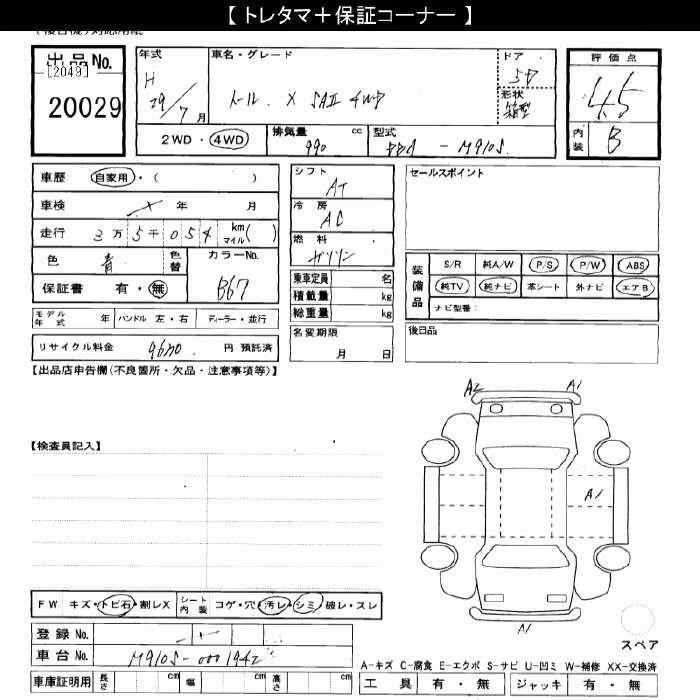 【 トレタマ＋保証コーナー 】
出品No.
[2049]
20029
年式
H
29/7月
車名・グレード
トール X SAⅡ 4WD
ドア
5D
形状
箱型
評価点
4.5
内装
B
2WD・4WD
排気量
990
cc
型式
DBA - M910S
車歴
自家用・( )
車検
年 月
走行
3万5千054
km
マイル( )
色
青
色替
カラーNo.
B67
保証書
有・無
モデル年式
年
ハンドル 左・右
ディーラー・並行
リサイクル料金
円 預託済
シフト
AT
冷房
AC
燃料
ガソリン
乗車定員
名
積載量
kg
総重量
kg
名変期限
月 日
セールスポイント
装備品
S/R 純A/W P/S P/W ABS
純TV 純ナビ 革シート 外ナビ エアB
ナビ型番：
後日品
【出品店申告欄(不良箇所・欠品・注意事項等)】
【検査員記入】
A2
A1
A1
A1
FW キズ・トビ石・割レX
シート内装
コゲ・穴・汚レ・シミ・破レ・スレ
登録No.
車台No.
M910S-0001942
車庫証明用
長さ
cm
幅
cm
高さ
cm
スペア
A-キズ C-腐食 E-エクボ S-サビ U-凹ミ W-補修 XX-交換済
工具
有・無
ジャッキ
有・無